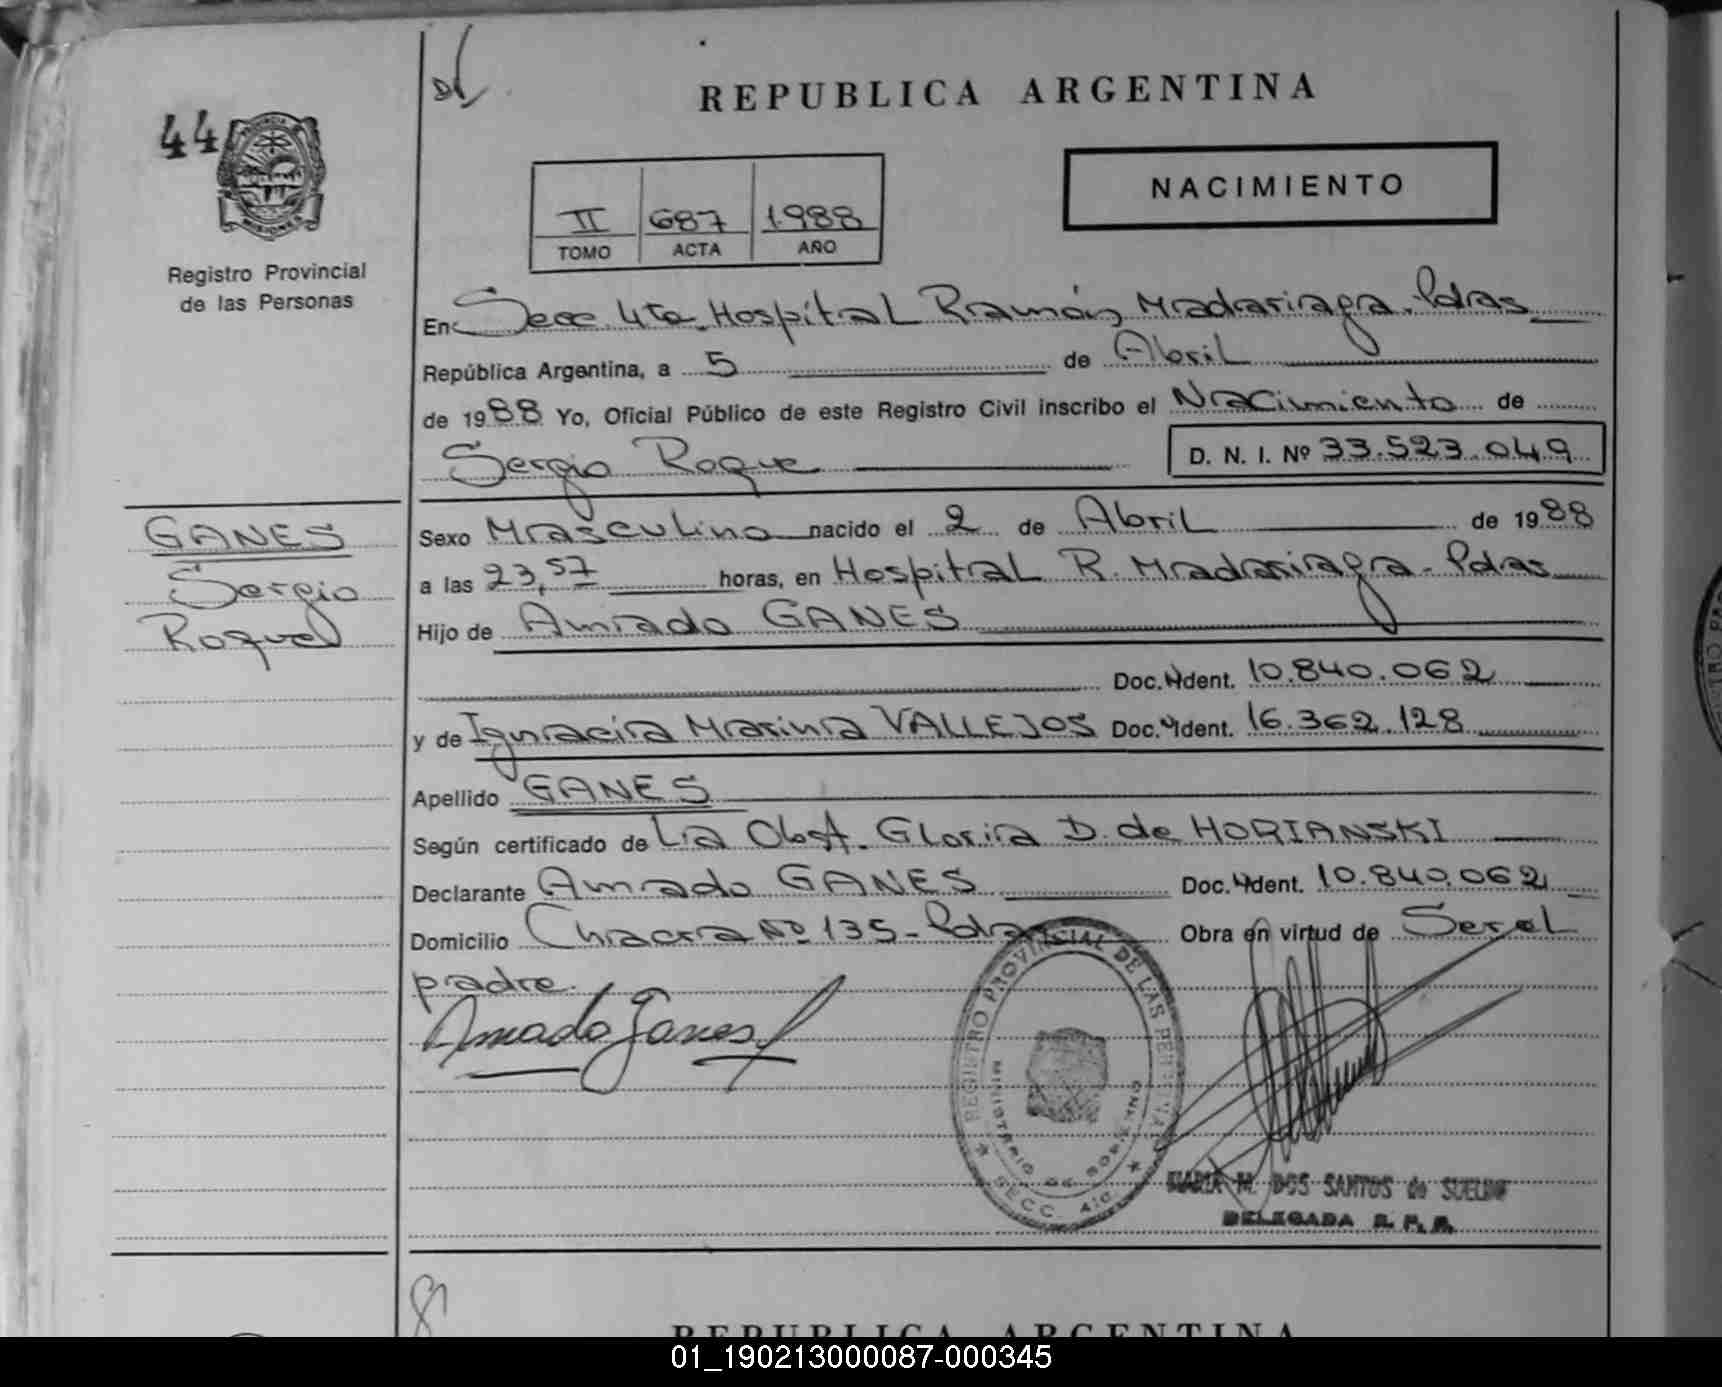 44
REPUBLICA ARGENTINA
PROVINCIA
MISIONES
Registro Provincial
de las Personas
II 687 1988
TOMO ACTA AÑO
NACIMIENTO
En Secc. 4ta. Hospital Ramón Madariaga. Pdas
República Argentina, a 5 de Abril
de 1988 Yo, Oficial Público de este Registro Civil inscribo el Nacimiento de
Sergio Roque
D. N. I. Nº 33.523.049
GANES
Sergio
Roque
Sexo Masculino nacido el 2 de Abril de 1988
a las 23,57 horas, en Hospital R. Madariaga. Pdas
Hijo de Amado GANES
Doc. Ident. 10.840.062
y de Ignacia Marina VALLEJOS Doc. Ident. 16.362.128
Apellido GANES
Según certificado de La Obst. Gloria D. de HORIANSKI
Declarante Amado GANES Doc. Ident. 10.840.062
Domicilio Chacra Nº 135 - Pdas Obra en virtud de Ser el
padre.
Amado Ganes
REGISTRO PROVINCIAL DE LAS PERSONAS
MINISTERIO DE GOBIERNO
SECC. 4ta
MARIA M. DOS SANTOS de SUELDO
DELEGADA R. P. P.
REPUBLICA ARGENTINA
01_190213000087-000345